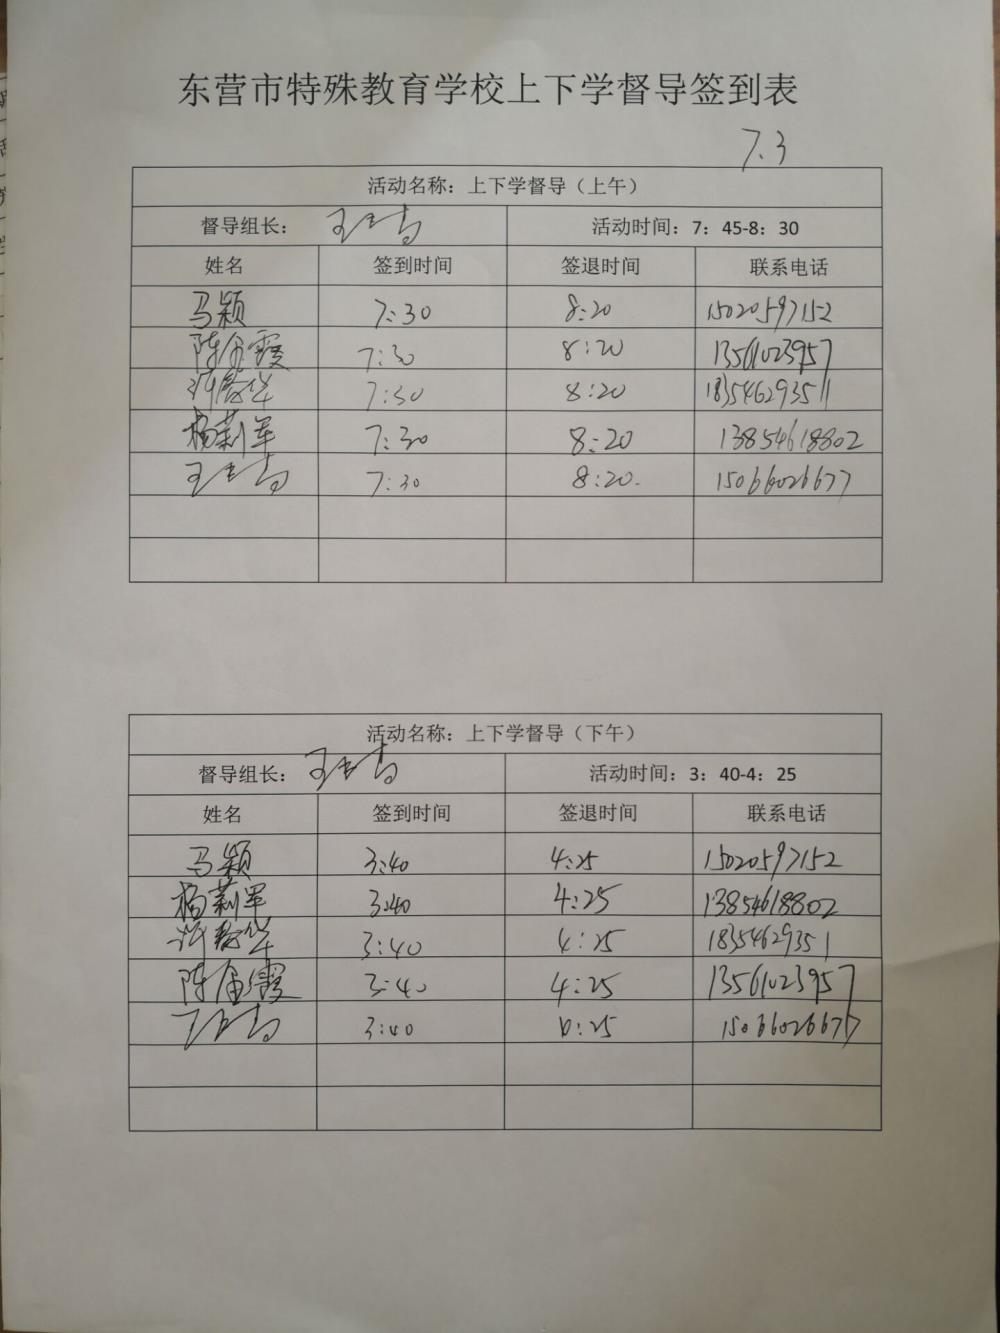 东营市特殊教育学校上下学督导签到表
7.3
活动名称：上下学督导（上午）
督导组长： 活动时间：7：45-8：30
姓名 签到时间 签退时间 联系电话
马颖 7:30 8:20 15020597152
陈 霞 7:30 8:20 13561023957
7:30 8:20 18354629351
杨莉军 7:30 8:20 13854618802
7:30 8:20. 15066026677
活动名称：上下学督导（下午）
督导组长： 活动时间：3：40-4：25
姓名 签到时间 签退时间 联系电话
马颖 3:40 4:25 15020597152
杨莉军 3:40 4:25 13854618802
3:40 4:25 18354629351
陈 霞 3:40 4:25 13561023957
3:40 4:25 15066026677